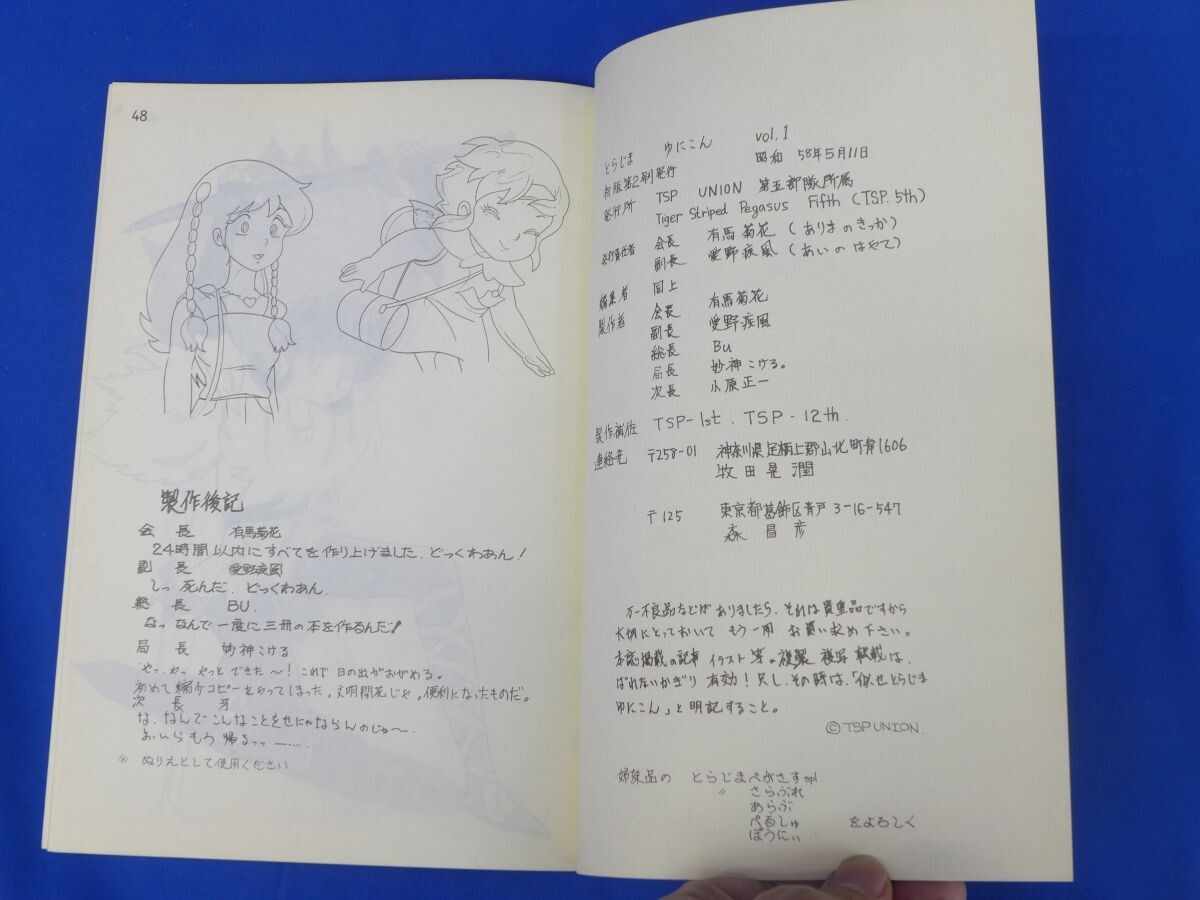 48
製作後記
会長 有馬菊花
24時間以内にすべてを作り上げました、どっくわあん!
副長 愛野疾風
しっ 死んだ、どっくわあん
総長 BU.
なっ なんで一度に三冊の本を作るんだ!
局長 妙神こける
やっ、わっ やっとできた〜!これで日の出がおがめる。
初めて縮ケコピーをやってしまった。文明開花じゃ。便利になったものだ。
次長 牙
な、なんでこんなことをせにゃならんのじゃ〜
おいらもう帰るっっ
※ ぬりえとして使用ください
とらじま ゆにこん vol.1
初版第2刷発行 昭和 58年5月11日
発行所 TSP UNION 第五部隊所属
Tiger Striped Pegasus Fifth (TSP.5th)
発行責任者 会長 有馬菊花(ありまのきっか)
副長 愛野疾風(あいのはやて)
編集者 同上
製作者 会長 有馬菊花
副長 愛野疾風
総長 BU
局長 妙神こける。
次長 小原正一
製作補佐 TSP-1st. TSP-12th.
連絡先 〒258-01 神奈川県足柄上郡山北町岸1606
牧田晃潤
〒125 東京都葛飾区青戸3-16-547
森昌彦
万一不良品などがありましたら、それは貴重品ですから
大切にとっておいて もう一冊 お買い求め下さい。
本誌掲載の記事 イラスト等の複製 複写 転載は、
ばれないかぎり 有効!只し、その時は、「にせとらじま
ゆにこん」と明記すること。
©TSP UNION.
姉妹品の とらじまぺがさす spl.
〃 さらぶれ
あらぶ
ぺるしゅ をよろしく
ぽうにぃ